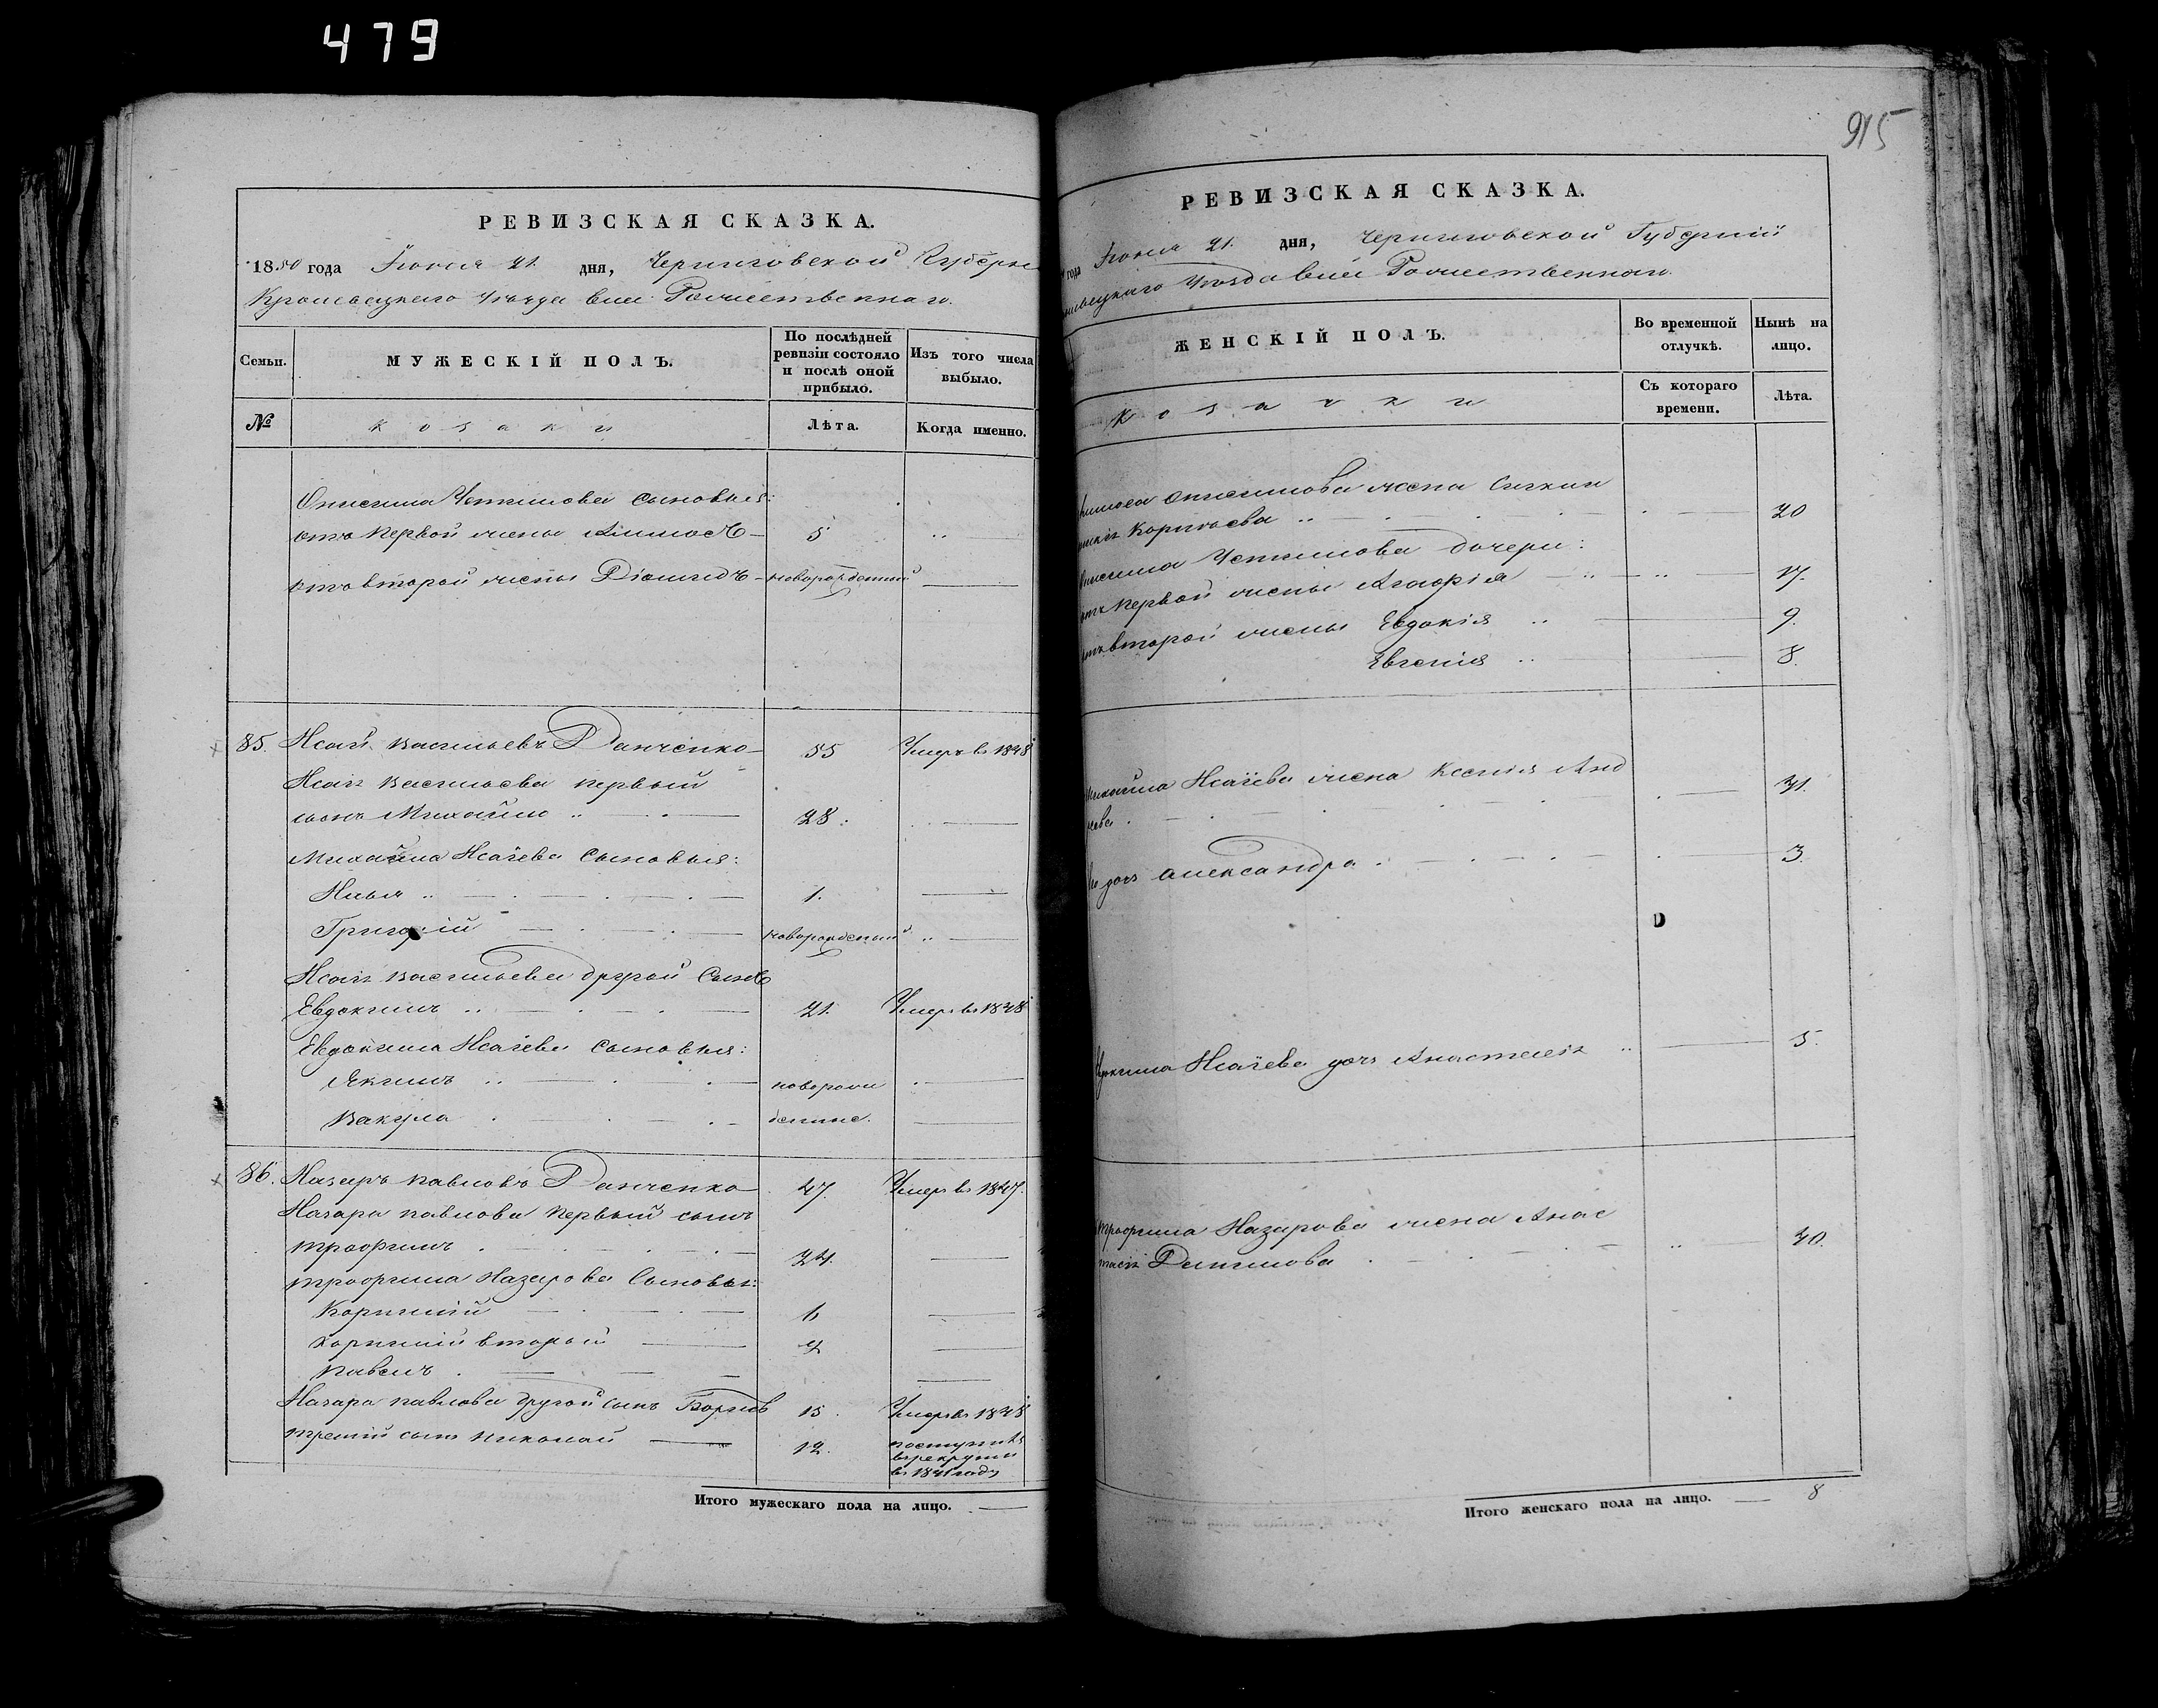 479
РЕВИЗСКАЯ СКАЗКА.
1850 года Іюня 21 дня, Черниговской Губерн
Кролевецкаго Уезда
Семьи.
МУЖЕСКІЙ ПОЛЪ.
По послѣдней ревизіи состояло и послѣ оной прибыло.
Изъ того числа выбыло.
№
козаки
Лѣта.
Когда именно.
Онисима сыновья:
отъ первой жены 5
отъ второй жены Діомидъ новорожденный
85. Исаій Васильевъ Данченко 55 Умеръ въ 1848
Исаія Васильева первый
сынъ Михайло 28
Михайла Исаіева сыновья:
Илья 1.
Григорій новорожденный
Исаія Васильева другой сынъ
Евдокимъ 21. Умеръ въ 1848
Евдокима Исаіева сыновья:
Якимъ новорож
Вакула денные.
86. Назаръ Павловъ Данченко 47. Умеръ въ 1847.
Назара Павлова первый сынъ
Трофимъ 24.
Трофима Назарова сыновья:
Корнилій 6
Корнилій второй 2
Павелъ
Назара Павлова другой сынъ Борисъ 15. Умеръ въ 1848
третій сынъ Николай 12. поступилъ
въ рекруты
въ 1841 году
Итого мужескаго пола на лицо.
915
РЕВИЗСКАЯ СКАЗКА.
года Іюня 21. дня, Черниговской Губерніи
Уезда
ЖЕНСКІЙ ПОЛЪ.
Во временной отлучкѣ.
Нынѣ на лицо.
козачки
Съ котораго времени.
Лѣта.
Онисимова жена
Корнѣева 20
дочери:
отъ первой жены Агафія 17.
отъ второй жены Евдокія 9.
Евгенія 8.
Михайла Исаіева жена Ксенія
31.
дочь Александра 3.
Евдокима Исаіева дочь Анастасія 5.
Трофима Назарова жена Анас
тасія Данилова 30.
Итого женскаго пола на лицо. 8